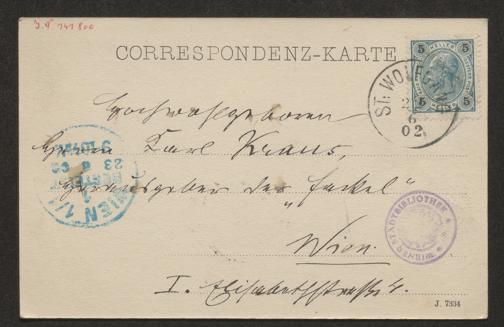 I.N 141800
CORRESPONDENZ-KARTE
5 HELLER 5
5 5
ST. WOLFGANG
6
02
Hochwohlgeboren
Herrn Karl Kraus,
Herausgeber der „Fackel"
Wien.
I. Elisabethstraße 4.
WIEN 1/1
BESTELLT
23 6 02
WIENER STADTBIBLIOTHEK
J. 7334